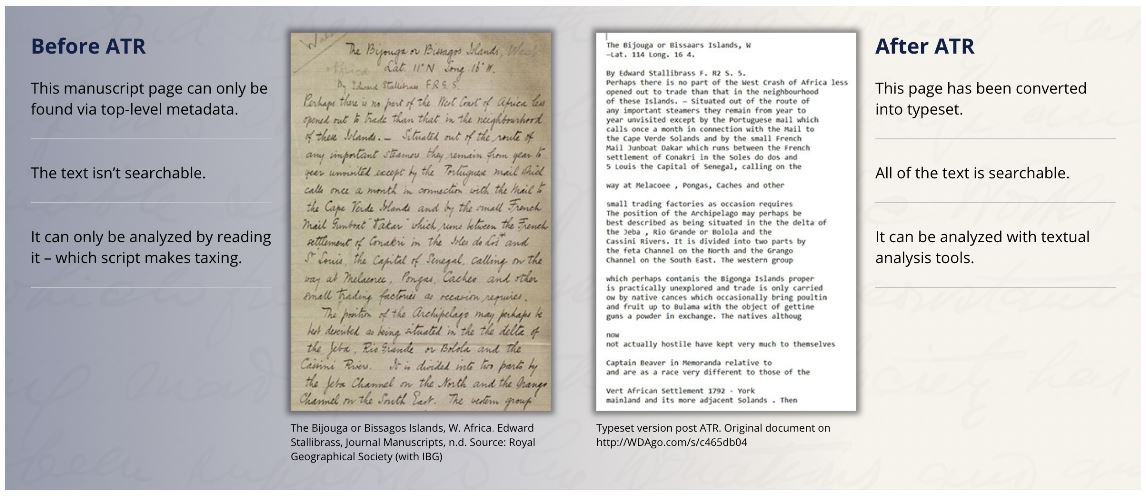 Before ATR
This manuscript page can only be
found via top-level metadata.
The text isn't searchable.
It can only be analyzed by reading
it – which script makes taxing.
The Bijouga or Bissagos Islands, West
Africa Lat. 11°N Long 16°W.
By Edward Stallibrass F.R.G.S.
Perhaps there is no part of the West Coast of Africa less
opened out to trade than that in the neighbourhood
of these Islands.— Situated out of the route of
any important steamers they remain from year to
year unvisited except by the Portuguese mail which
calls once a month in connection with the Mail to
the Cape Verde Islands and by the small French
Mail Gunboat "Dakar" which runs between the French
settlement of Conakri in the Isles de Los and
St Louis, the Capital of Senegal, calling on the
way at Melacoree, Pongas, Cacheo and other
small trading factories as occasion requires.
The position of the Archipelago may perhaps be
best described as being situated in the the delta of
the Jeba, Rio Grande or Bolola and the
Cassini Rivers. It is divided into two parts by
the Jeba Channel on the North and the Orango
Channel on the South East. The western group
The Bijouga or Bissagos Islands, W. Africa. Edward
Stallibrass, Journal Manuscripts, n.d. Source: Royal
Geographical Society (with IBG)
The Bijouga or Bissaars Islands, W
—Lat. 114 Long. 16 4.
By Edward Stallibrass F. R2 S. 5.
Perhaps there is no part of the West Crash of Africa less
opened out to trade than that in the neighbourhood
of these Islands. — Situated out of the route of
any important steamers they remain from year to
year unvisited except by the Portuguese mail which
calls once a month in connection with the Mail to
the Cape Verde Solands and by the small French
Mail Junboat Dakar which runs between the French
settlement of Conakri in the Soles do dos and
5 Louis the Capital of Senegal, calling on the
way at Melacoee , Pongas, Caches and other
small trading factories as occasion requires
The position of the Archipelago may perhaps be
best described as being situated in the the delta of
the Jeba , Rio Grande or Bolola and the
Cassini Rivers. It is divided into two parts by
the feta Channel on the North and the Grango
Channel on the South East. The western group
which perhaps contanis the Bigonga Islands proper
is practically unexplored and trade is only carried
ow by native cances which occasionally bring poultin
and fruit up to Bulama with the object of gettine
guns a powder in exchange. The natives althoug
now
not actually hostile have kept very much to themselves
Captain Beaver in Memoranda relative to
and are as a race very different to those of the
Vert African Settlement 1792 - York
mainland and its more adjacent Solands . Then
Typeset version post ATR. Original document on
http://WDAgo.com/s/c465db04
After ATR
This page has been converted
into typeset.
All of the text is searchable.
It can be analyzed with textual
analysis tools.